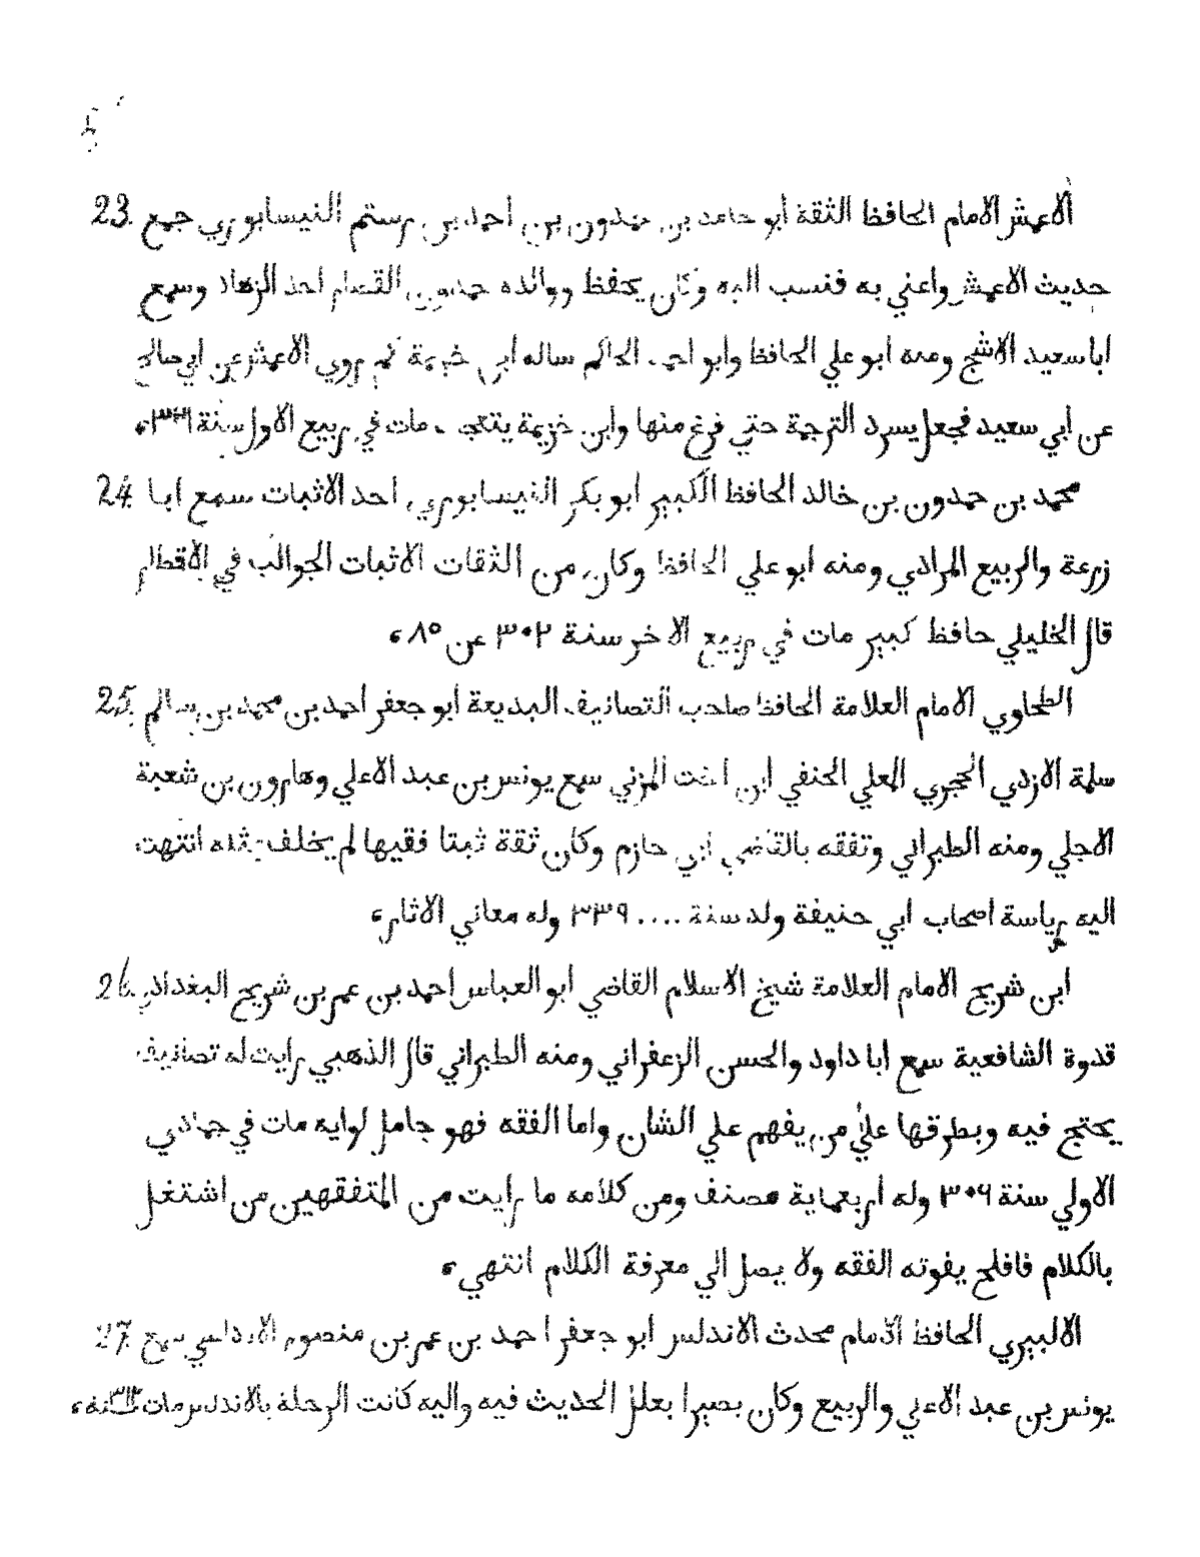 5
23. الاعمش الامام الحافظ الثقة أبو حامد بن حمدون بن احمد بن رستم النيسابوري جمع
حديث الاعمش واعني به فنسب اليه وكان يحفظ ووالده حمدون القصار احد الزهاد وسمع
ابا سعيد الاشج ومنه ابو علي الحافظ وابو احمد الحاكم ساله ابن خزيمة كم روي الاعمش عن ابي صالح
عن ابي سعيد فجعل يسرد الترجمة حتي فرغ منها وابن خزيمة يتعجب مات في ربيع الاول سنة ٣٢١
24. محمد بن حمدون بن خالد الحافظ الكبير أبو بكر النيسابوري احد الاثبات سمع ابا
زرعة والربيع المرادي ومنه ابو علي الحافظ وكان من الثقات الاثبات الجوالب في الاقطار
قال الخليلي حافظ كبير مات في ربيع الاخر سنة ٣٠٢ عن ٨٥
25. الطحاوي الامام العلامة الحافظ صاحب التصانيف البديعة ابو جعفر احمد بن محمد بن سالم
سلمة الازدي الحجري العلي الحنفي ابن اخت المزني سمع يونس بن عبد الاعلي وهارون بن شعبة
الاجلي ومنه الطبراني وتفقه بالقاضي ابي حازم وكان ثقة ثبتا فقيها لم يخلف مثله انتهت
اليه رياسة اصحاب ابي حنيفة ولد سنة .... ٣٣٩ وله معاني الاثار
26. ابن شريح الامام العلامة شيخ الاسلام القاضي ابو العباس احمد بن عمر بن شريح البغدادي
قدوة الشافعية سمع ابا داود والحسن الزعفراني ومنه الطبراني قال الذهبي رايت له تصانيف
يحتج فيه وبطرقها علي من يفهم علي الشان واما الفقه فهو جامل لوايه مات في جمادي
الاولي سنة ٣٠٦ وله اربعماية مصنف ومن كلامه ما رايت من المتفقهين من اشتغل
بالكلام فافلح يفوته الفقه ولا يصل الي معرفة الكلام انتهي
27. الالبيري الحافظ الامام محدث الاندلس ابو جعفر احمد بن عمر بن منصور الاندلسي سمع
يونس بن عبد الاعلي والربيع وكان بصيرا بعلل الحديث فيه واليه كانت الرحلة بالاندلس مات سنة